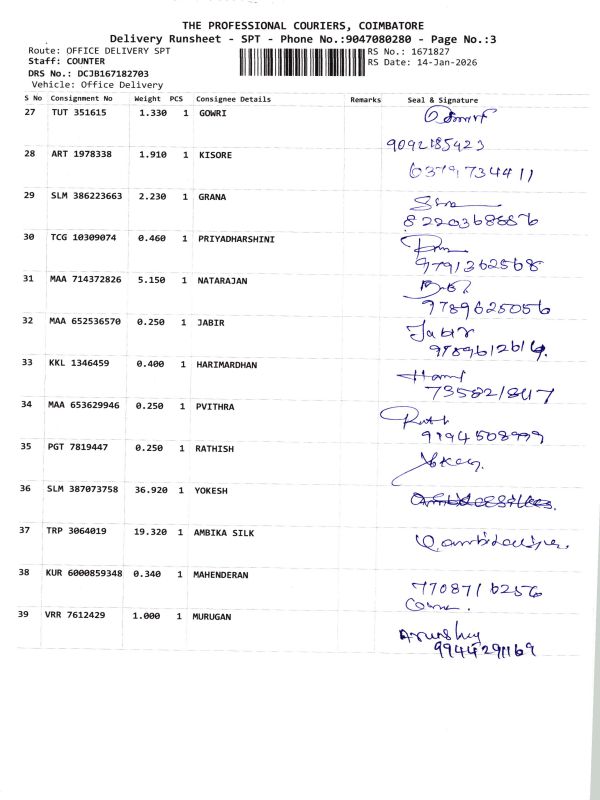 THE PROFESSIONAL COURIERS, COIMBATORE
Delivery Runsheet - SPT - Phone No.:9047080280 - Page No.:3
Route: OFFICE DELIVERY SPT RS No.: 1671827
Staff: COUNTER RS Date: 14-Jan-2026
DRS No.: DCJB167182703
Vehicle: Office Delivery
S No Consignment No Weight PCS Consignee Details Remarks Seal & Signature
27 TUT 351615 1.330 1 GOWRI
9092185423
28 ART 1978338 1.910 1 KISORE
6379734411
29 SLM 386223663 2.230 1 GRANA
8220368856
30 TCG 10309074 0.460 1 PRIYADHARSHINI
9791362568
31 MAA 714372826 5.150 1 NATARAJAN
9789625056
32 MAA 652536570 0.250 1 JABIR Jabir
9789612614
33 KKL 1346459 0.400 1 HARIMARDHAN
34 MAA 653629946 0.250 1 PVITHRA
9194508999
35 PGT 7819447 0.250 1 RATHISH
36 SLM 387073758 36.920 1 YOKESH
37 TRP 3064019 19.320 1 AMBIKA SILK
38 KUR 6000859348 0.340 1 MAHENDERAN
7708716256
39 VRR 7612429 1.000 1 MURUGAN
9944291169